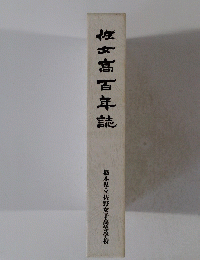 佐女高百年誌
栃木県立佐野女子高等学校